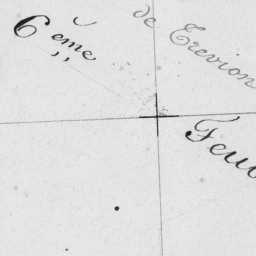 6 eme
de Trevion
Feui